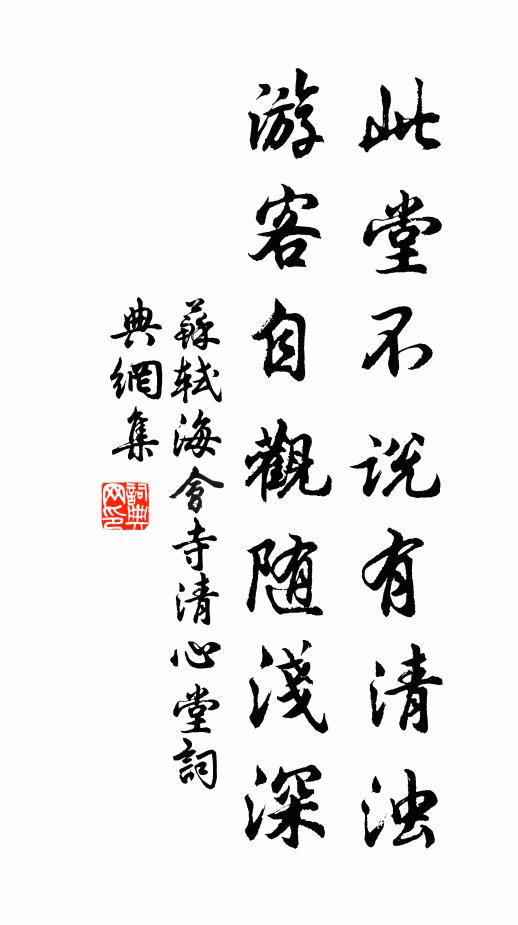 此堂不说有清浊
游客自觀随淺深
蘇軾海會寺清心堂詞
典網集
詞典
网印